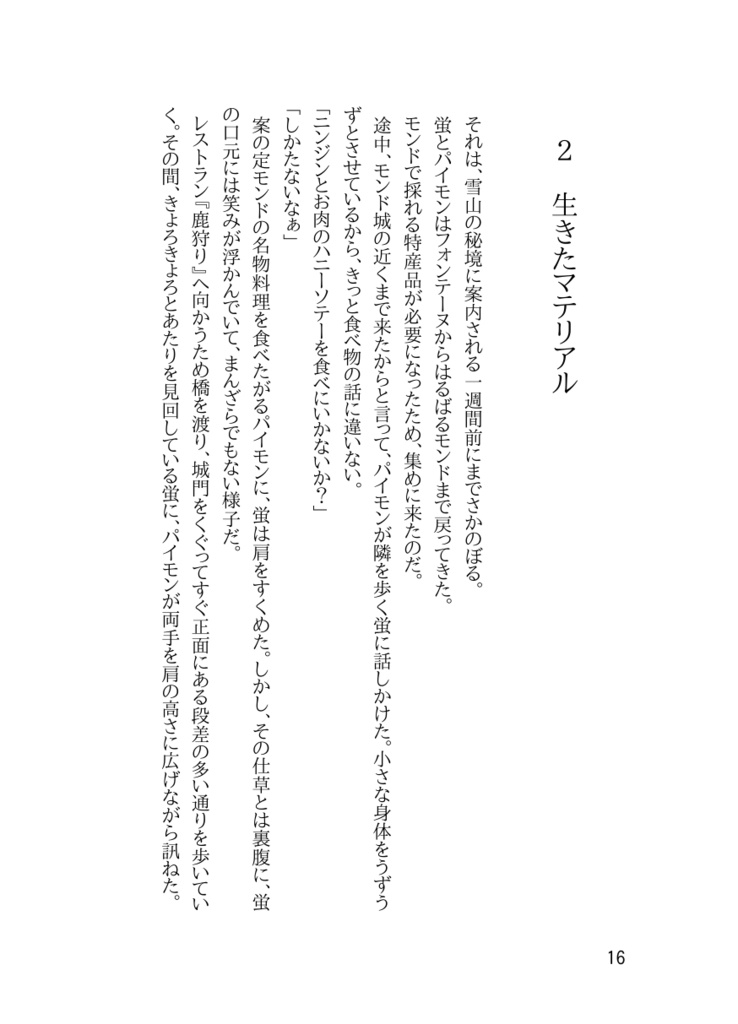 2　生きたマテリアル
それは、雪山の秘境に案内される一週間前にまでさかのぼる。
蛍とパイモンはフォンテーヌからはるばるモンドまで戻ってきた。
モンドで採れる特産品が必要になったため、集めに来たのだ。
途中、モンド城の近くまで来たからと言って、パイモンが隣を歩く蛍に話しかけた。小さな身体をうずう
ずとさせているから、きっと食べ物の話に違いない。
「ニンジンとお肉のハニーソテーを食べにいかないか？」
「しかたないなぁ」
案の定モンドの名物料理を食べたがるパイモンに、蛍は肩をすくめた。しかし、その仕草とは裏腹に、蛍
の口元には笑みが浮かんでいて、まんざらでもない様子だ。
レストラン『鹿狩り』へ向かうため橋を渡り、城門をくぐってすぐ正面にある段差の多い通りを歩いてい
く。その間、きょろきょろとあたりを見回している蛍に、パイモンが両手を肩の高さに広げながら訊ねた。
16